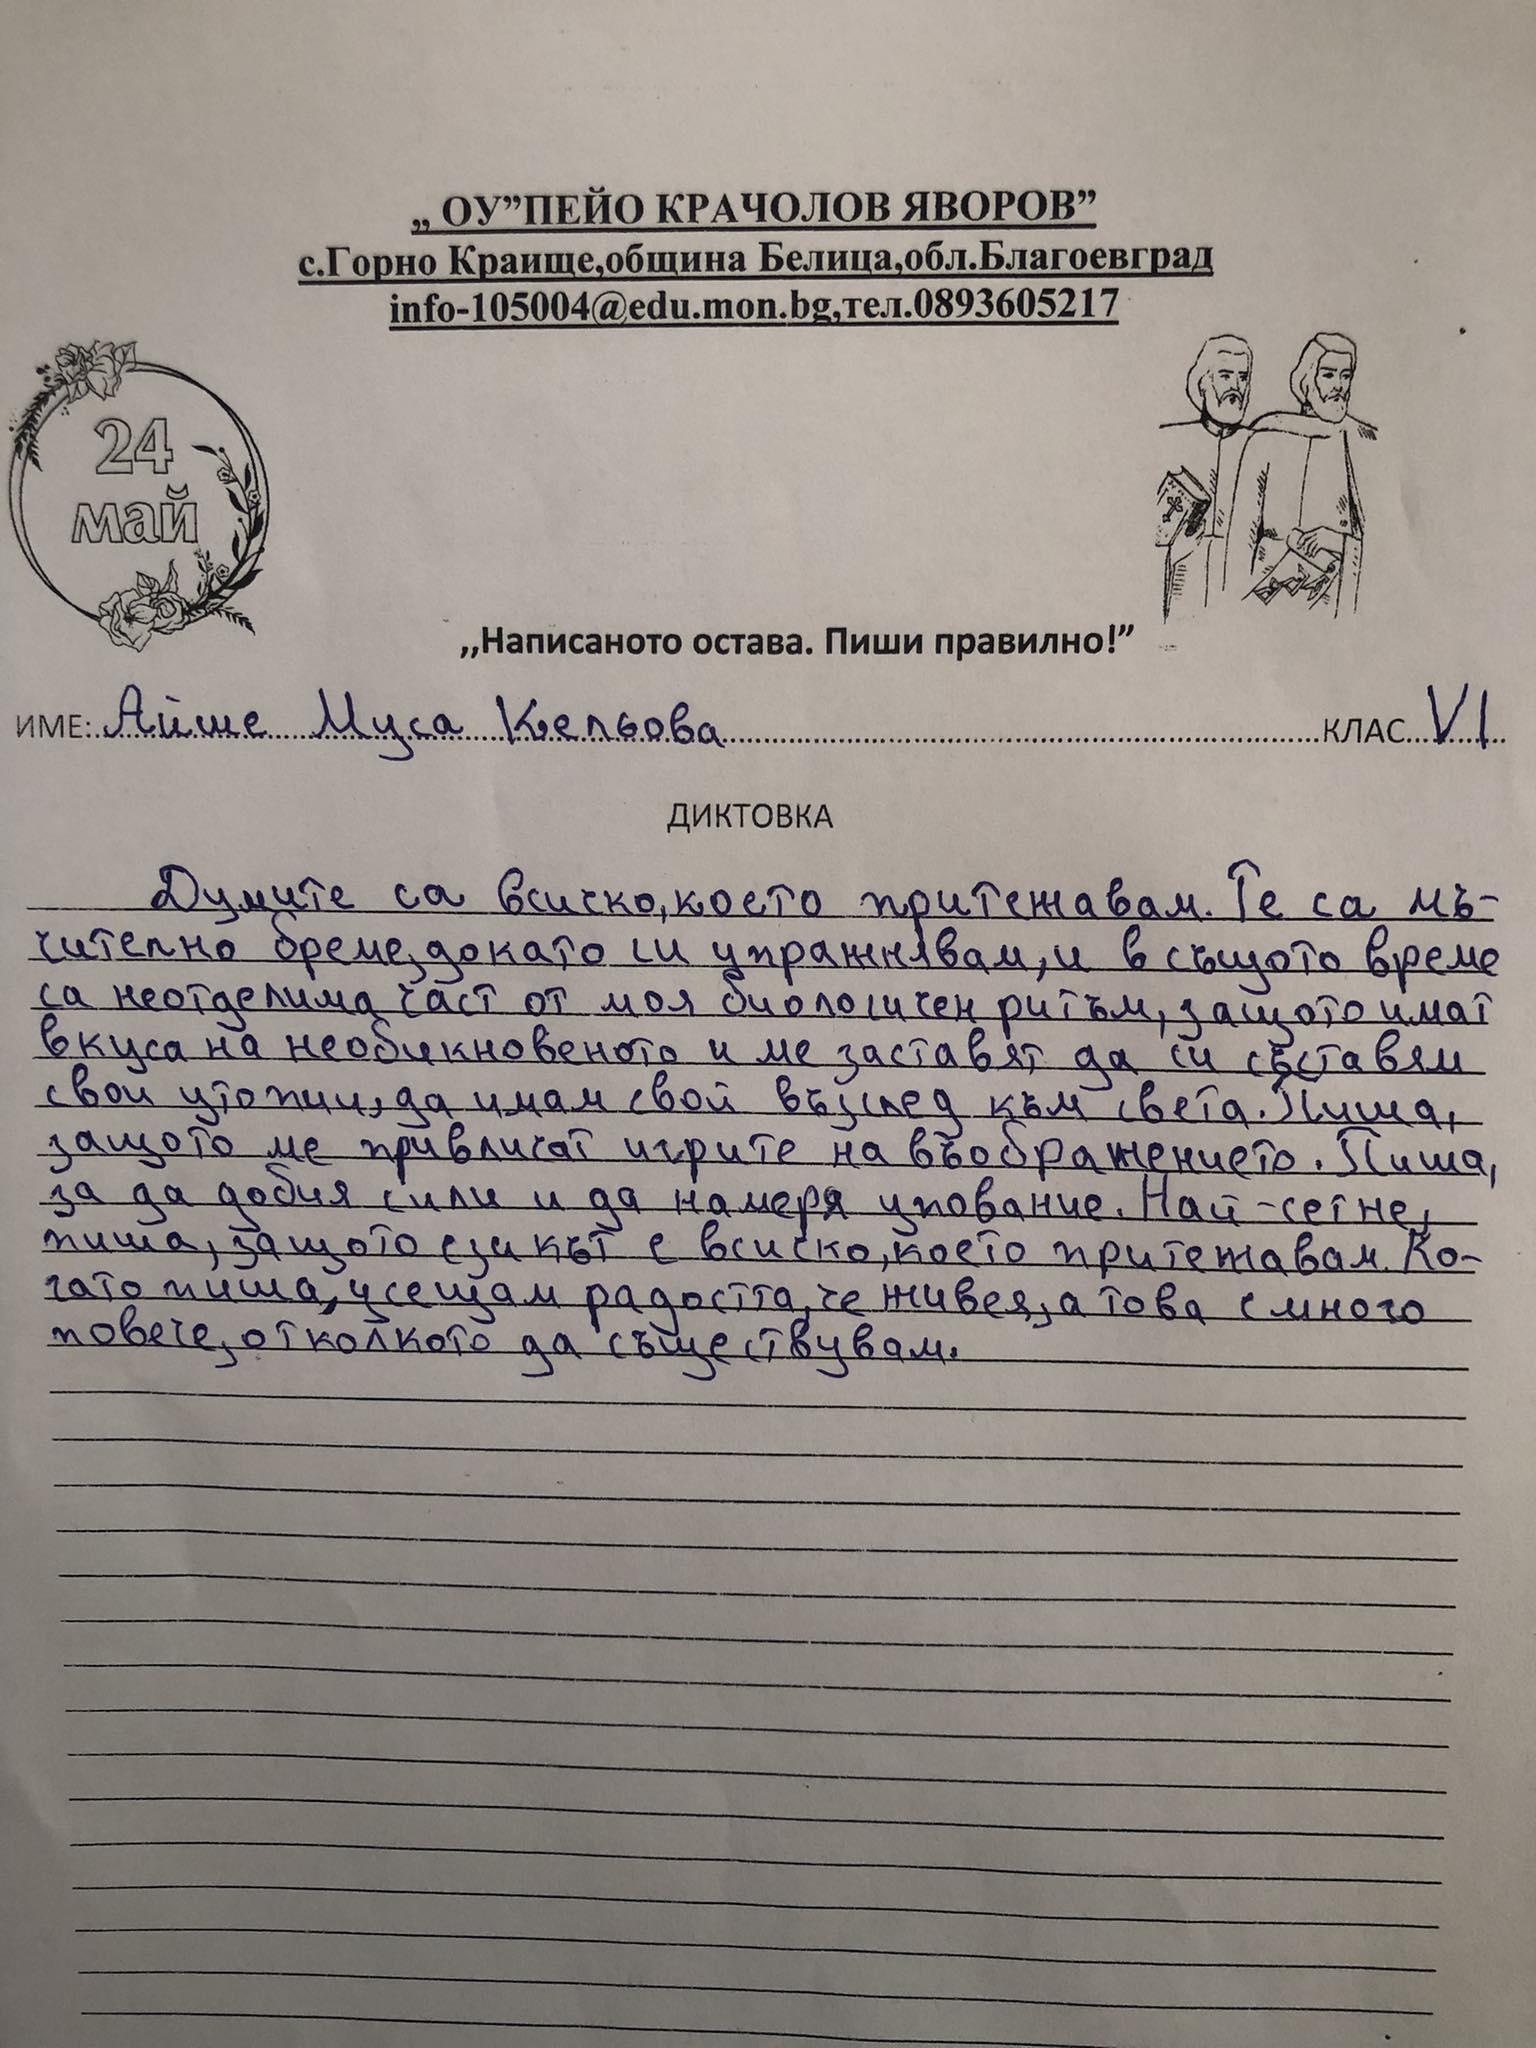 „ ОУ”ПЕЙО КРАЧОЛОВ ЯВОРОВ”
с.Горно Краище,община Белица,обл.Благоевград
info-105004@edu.mon.bg,тел.0893605217
24
май
,,Написаното остава. Пиши правилно!”
ИМЕ: Айше Муса Кьельова КЛАС VI
ДИКТОВКА
Думите са всичко, което притежавам. Те са мъ-
чително бреме, докато си упражнявам, и в същото време
са неотделима част от моя биологичен ритъм, защото имат
вкуса на необикновеното и ме заставят да си съставям
свои утопии, да имам свой възглед към света. Пиша,
защото ме привличат игрите на въображението. Пиша,
за да добия сили и да намеря упование. Най-сетне,
пиша, защото езикът е всичко, което притежавам. Ко-
гато пиша, усещам радостта, че живея, а това е много
повече, отколкото да съществувам.